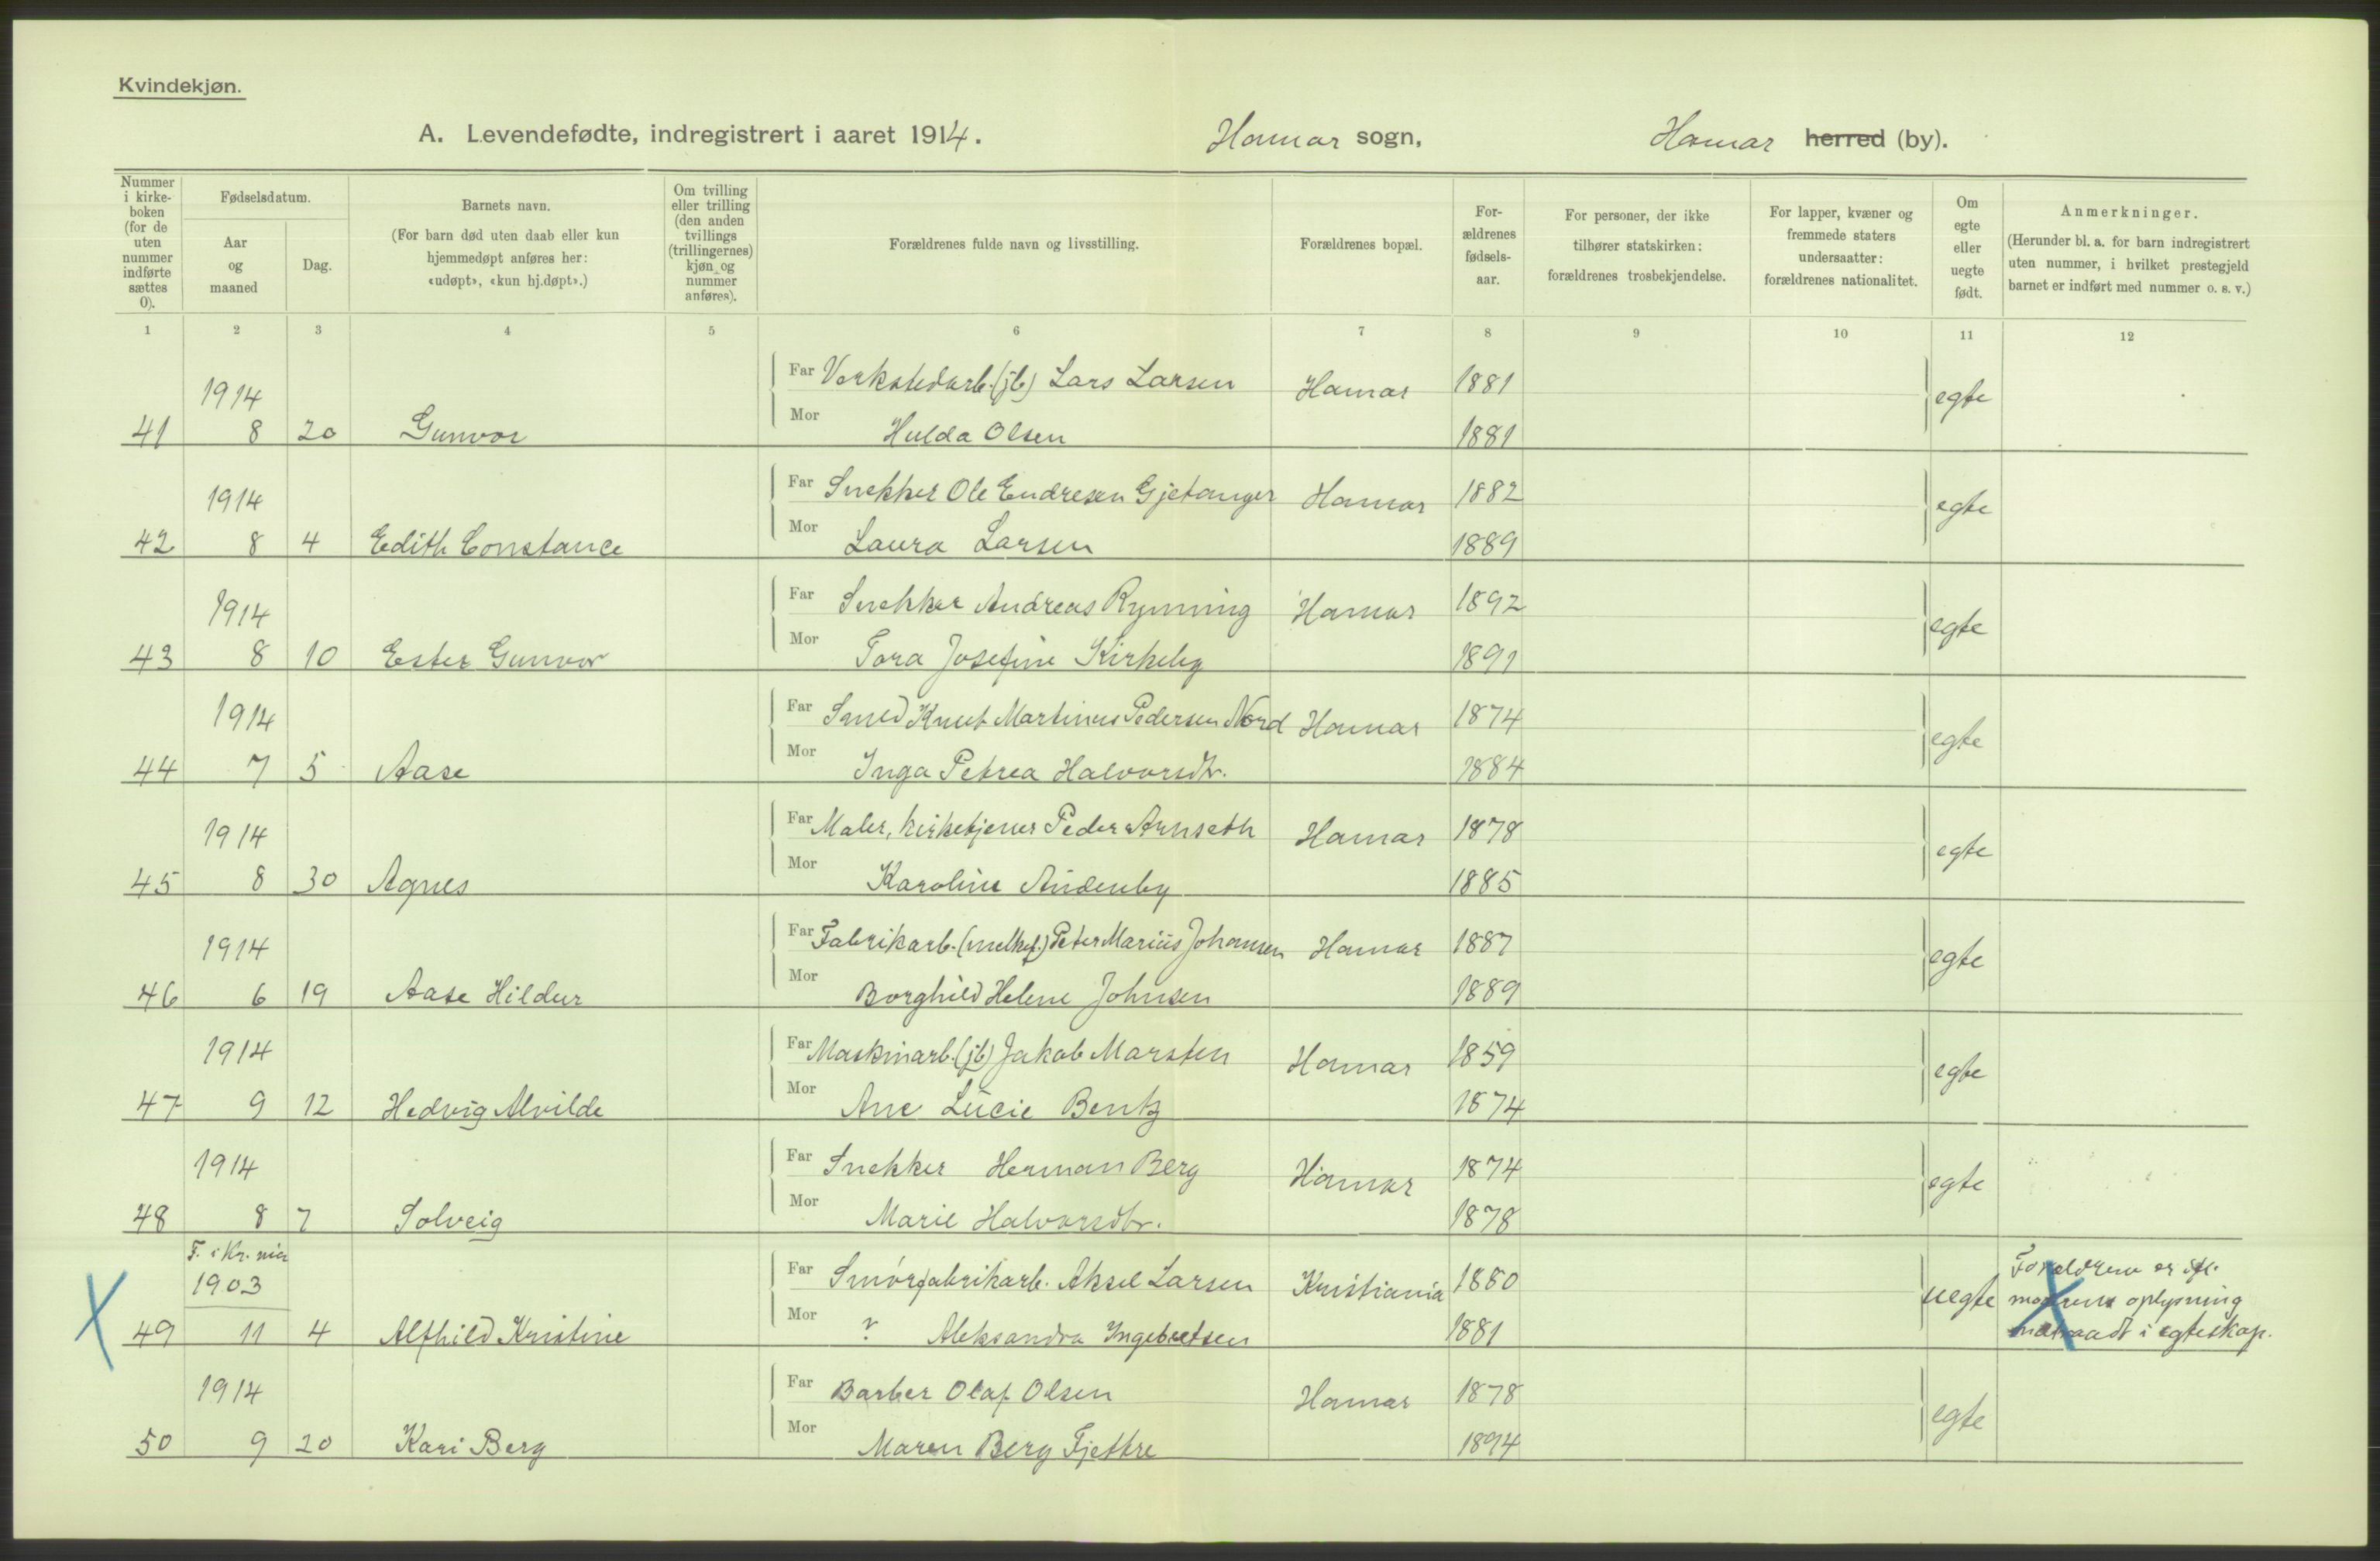 Kvindekjøn.
A. Levendefødte, indregistrert i aaret 1914. Hamar sogn, Hamar herred (by).
Nummer i kirke-boken (for de uten nummer indførte sættes 0).
Fødselsdatum.
Aar og maaned
Dag.
Barnets navn.
(For barn død uten daab eller kun hjemmedøpt anføres her: «udøpt», «kun hj.døpt».)
Om tvilling eller trilling (den anden tvillings (trillingernes) kjøn og nummer anføres).
Forældrenes fulde navn og livsstilling.
Forældrenes bopæl.
For-ældrenes fødsels-aar.
For personer, der ikke tilhører statskirken: forældrenes trosbekjendelse.
For lapper, kvæner og fremmede staters undersaatter: forældrenes nationalitet.
Om egte eller uegte født.
Anmerkninger.
(Herunder bl. a. for barn indregistrert uten nummer, i hvilket prestegjeld barnet er indført med nummer o. s. v.)
1 2 3 4 5 6 7 8 9 10 11 12
1914 Far Verkstedarb. (jb) Lars Larsen Hamar 1881 egte
41 8 20 Gunvor Mor Hulda Olsen 1881
1914 Far Snekker Ole Endresen Gjetanger Hamar 1882 egte
42 8 4 Edith Constance Mor Laura Larsen 1889
1914 Far Snekker Andreas Rynning Hamar 1892 egte
43 8 10 Ester Gunvor Mor Tora Josefine Kirkeby 1891
1914 Far Smed Knut Martinus Pedersen Nord Hamar 1874 egte
44 7 5 Aase Mor Inga Petrea Halvorsdtr. 1884
1914 Far Maler, kirketjener Peder Arnseth Hamar 1878 egte
45 8 30 Agnes Mor Karoline Aüdenby 1885
1914 Far Fabrikarb. (melkef.) Peter Mariüs Johansen Hamar 1887 egte
46 6 19 Aase Hildur Mor Borghild Helene Johnsen 1889
1914 Far Maskinarb. (jb) Jakob Marsten Hamar 1859 egte
47 9 12 Hedvig Alvilde Mor Ane Lücie Bentz 1874
1914 Far Snekker Herman Berg Hamar 1874 egte
48 8 7 Solveig Mor Marie Halvorsdtr. 1878
F. i Kr. nia
1903 Far Smørfabrikarb. Aksel Larsen Kristiania 1880 uegte Forældrene er ifl. moderens oplysning indtraadt i egteskap.
49 11 4 Alfhild Kristine Mor ? Aleksandra Ingebretsen 1881
1914 Far Barber Olaf Olsen Hamar 1878 egte
50 9 20 Kari Berg Mor Maren Berg Fjettre 1894